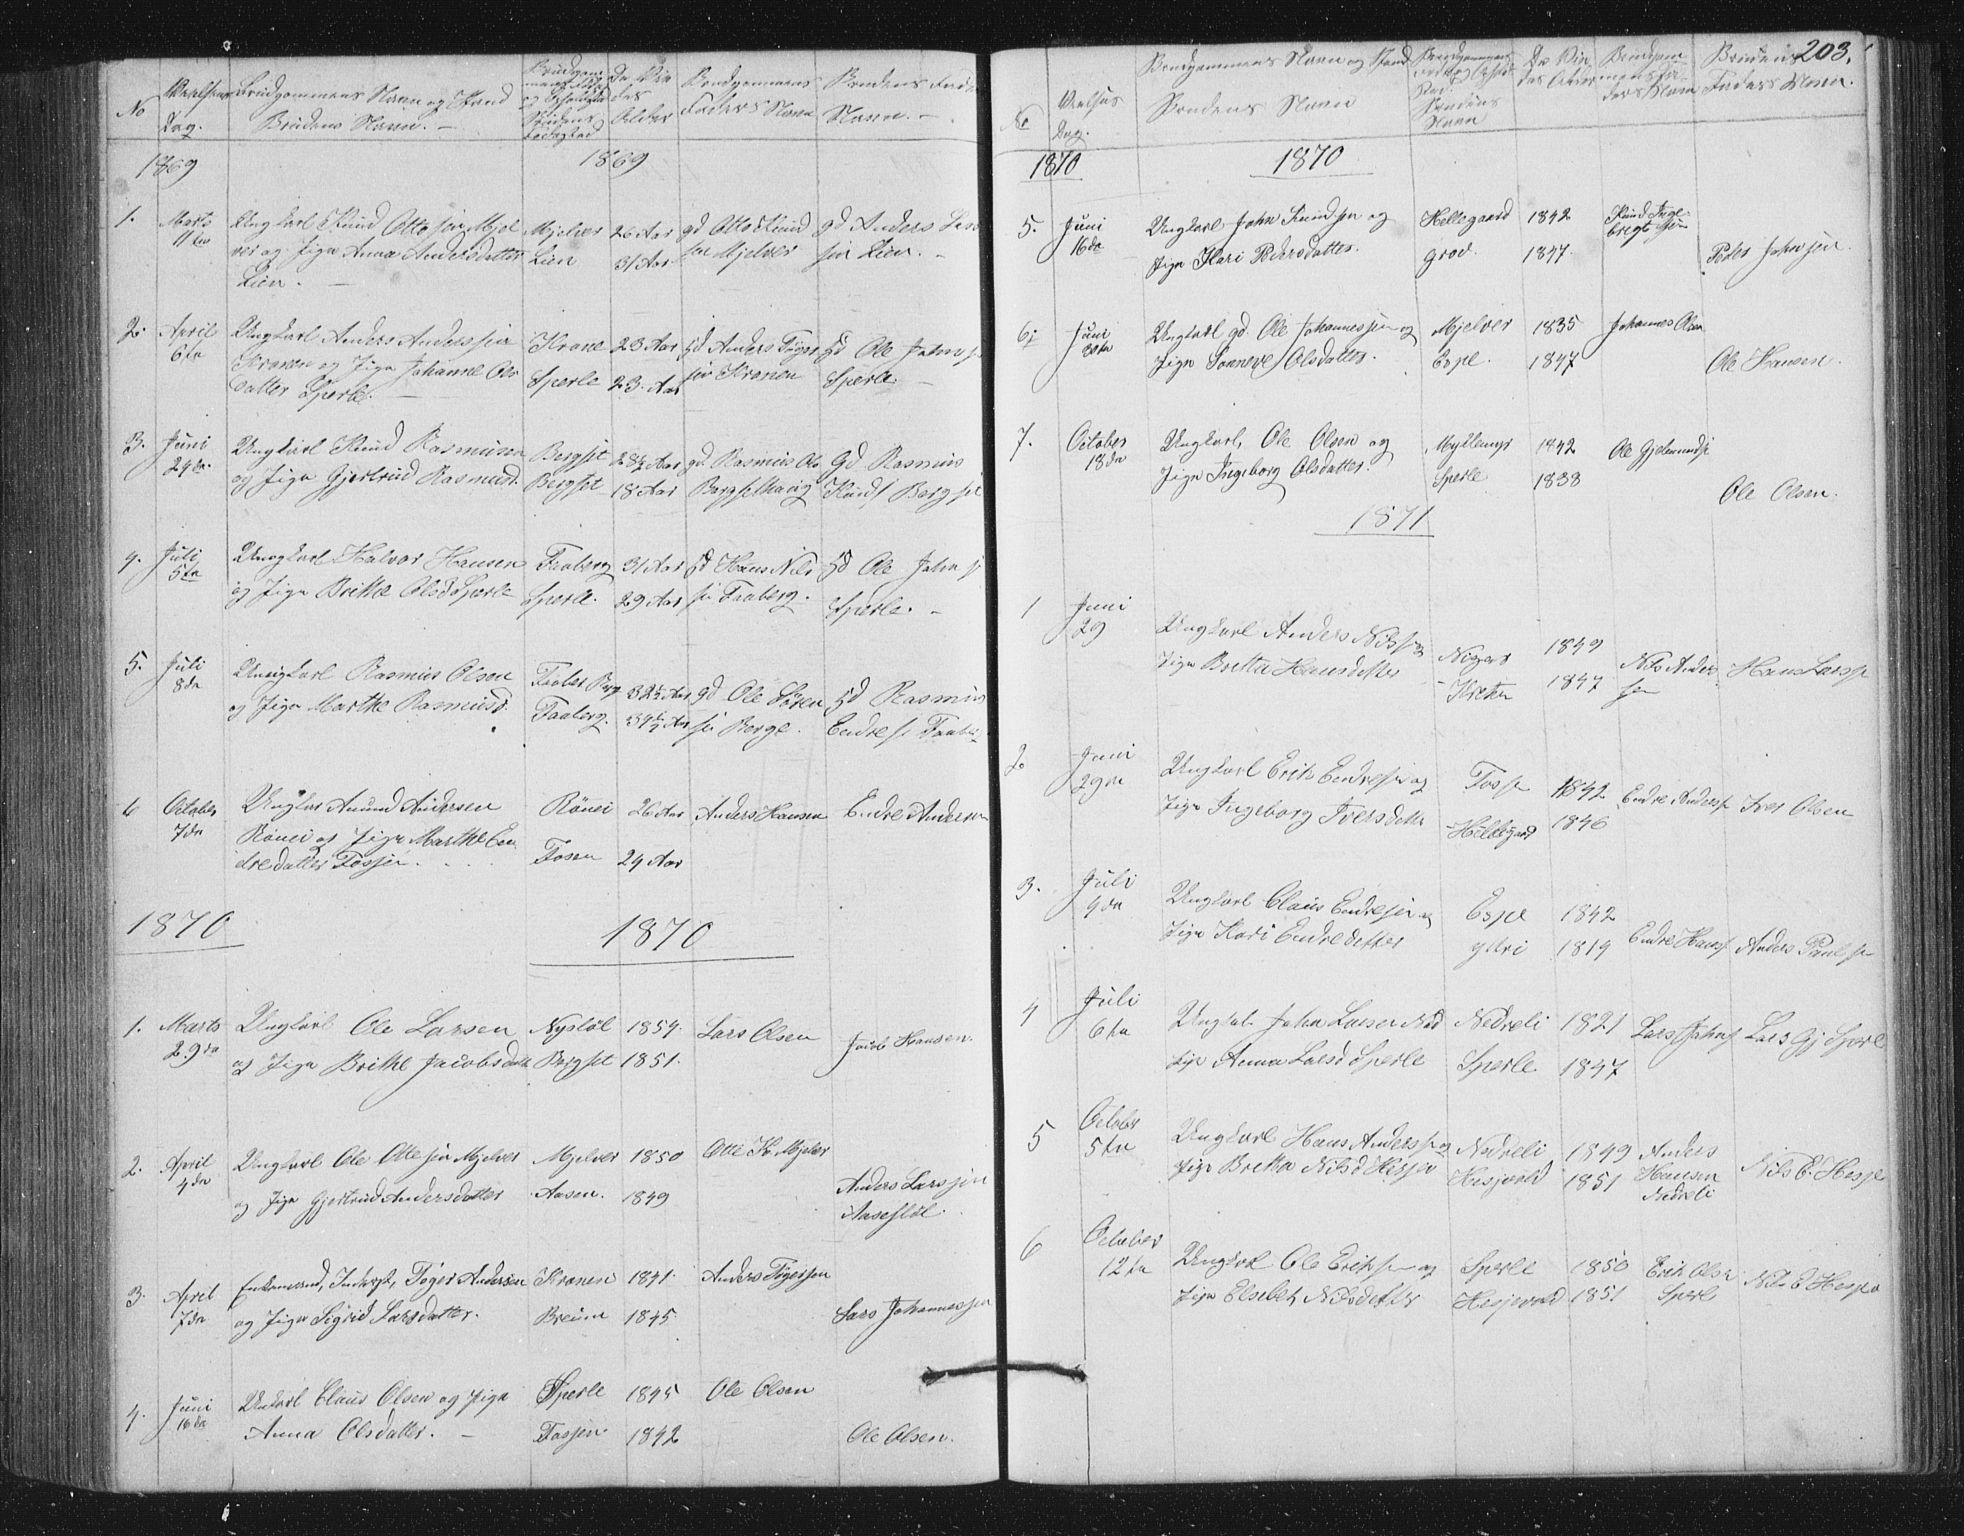 No
Vielses
Dag.
Brudgommens Navn og Stand
Brudens Navn. —
Brudgommens Fader
Faders Navn
Brudens Fad
Navn. —
1869
1869
1.
Marts
11te
Ungkarl Knud Ottosen Mjel
ver og Pige Anna Andersdatter
Lien. —
Mjelver
Lien
26 Aar
31 Aar
gd Otto Knud
sen Mjelver
gd Anders Lar
sen Lien. -
2.
April
6te
Ungkarl Anders Anderssen
Kronen og Pige Johanne Ols
datter Sperle. —
Krone
Sperle
23 Aar
23. Aar
gd Anders Tøger
sen Kronen
gd Ole Johns
Sperle. —
3.
Juni
24de
Ungkarl Knud Rasmusen
og Pige Gjertrud Rasmusd.
Bergset
Bergset
28½ Aar
18 Aar
gd. Rasmus Ols
Bergset
Gd Rasmus
Knuds Bergset
4.
Juli
5te
Ungkarl Halvor Hansen
og Pige Brithe Olsd Sperle
Faaberg
Sperle.
31 Aar
29 Aar
gd Hans Nils
sen Faaberg.
gd Ole Johns
Sperle. -
5.
Juli
8de
Ungkarl Rasmus Olsen
og Pige Marthe Rasmusd.
Faaber Berg
Faaberg.
32½ Aar
34½ Aar
gd Ole Søren
sen Berge.
gd Rasmus
Endres Faabe
6
October
7de
Ungkar Amund Andersen
Rønei og Pige Marthe En
dredatter Fossen.
Rønei
Fosen
26 Aar
24 Aar
Anders Hansen
Endre Andersen
1870
1870
1.
Marts
29de
Ungkarl Ole Larsen
og Pige Brithe Jacobsdatt
Nystøl
Bergset
1854.
1851.
Lars Olsen
Jacob Hansen.
2.
April
4de
Ungkarl Ole Ottesen Mjelver
og Pige Gjertrud Andersdatter
Mjelver
Aasen.
1850
1849
Otte K. Mjelver
Anders Larssen
Aasestøl.
3.
April
7de
Enkemand, Inderst, Tøger Andersen
og Pige Sigrid Larsdatter.
Kronen
Breum
1841.
1845.
Anders Tøgersen
Lars Johannessen
4.
Juni
16de
Unkarl Claus Olsen og Pige
Anna Olsdatter. —
Sperle
Fossen.
1845
1842
Ole Olsen
Ole Olsen.
203.
No
Vielses
Dag.
Brudgommens Navn og Stand
Brudens Navn
Brudens
Faders Navn.
1870
1870
5.
Juni
16de
Ungkarl John Knudsen og
Pige Kari Pedersdatter.
Hellegaard
grov.
1842
1847.
Knud Inge-
brigtsen
Peder Johnsen.
6.
Juni
Ungkarl gd. Ole Johannessen og
Pige Sonneve Olsdatter.
Mjelver
Espe.
1835
1847
Johannes Olsen
Ole Hansen.
7.
October
18de
Ungkarl, Ole Olsen og
Pige Ingeborg Olsdatter.
Myklemyr
Sperle
1842
1838
Ole Gjelmunds
Ole Olsen.
1871
1
Juni
29
Ungkarl Anders Nilssen
Pige Britta Hansdatter
Nigar
Kreken
1849
1847
Nils Ander
sen
Hans Larss
2.
Juni
29de
Ungkarl Erik Endresen og
Pige Ingeborg Iversdatter
Foss
Hildegard
1842
1846
Endre Anderss
Iver Olsen
3.
Juli
4de
Ungkarl Claus Endresen og
Pige Kari Endredatter
Espe
ytri
1842
1819
Endre Hans
Anders Paulsen
4
Juli
6te
Ungkl. John Larsen Ned
Pige Anna Larsd Sperle
Nedreli
Sperle.
1821
1847
Lars Johns
Lars Gj Sperl
5
October
5te
Ungkarl Hans Anderssen og
Pige Britta Nilsd Hesjev
Nedreli
Hesjevold
1849
1851
Anders
Hansen
Nedreli
Nils E. Hesje
6
October
12te
Ungkarl Ole Eriksen og
Pige Elsebet Nilsdatter
Sperle
Hesjevold
1850
1851
Erik Olsen
Sperl
Nils E. Hesje